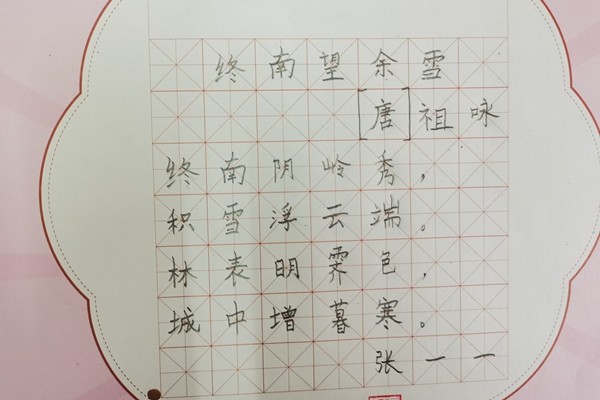 终南望余雪
[唐]祖咏
终南阴岭秀，
积雪浮云端。
林表明霁色，
城中增暮寒。
张一一